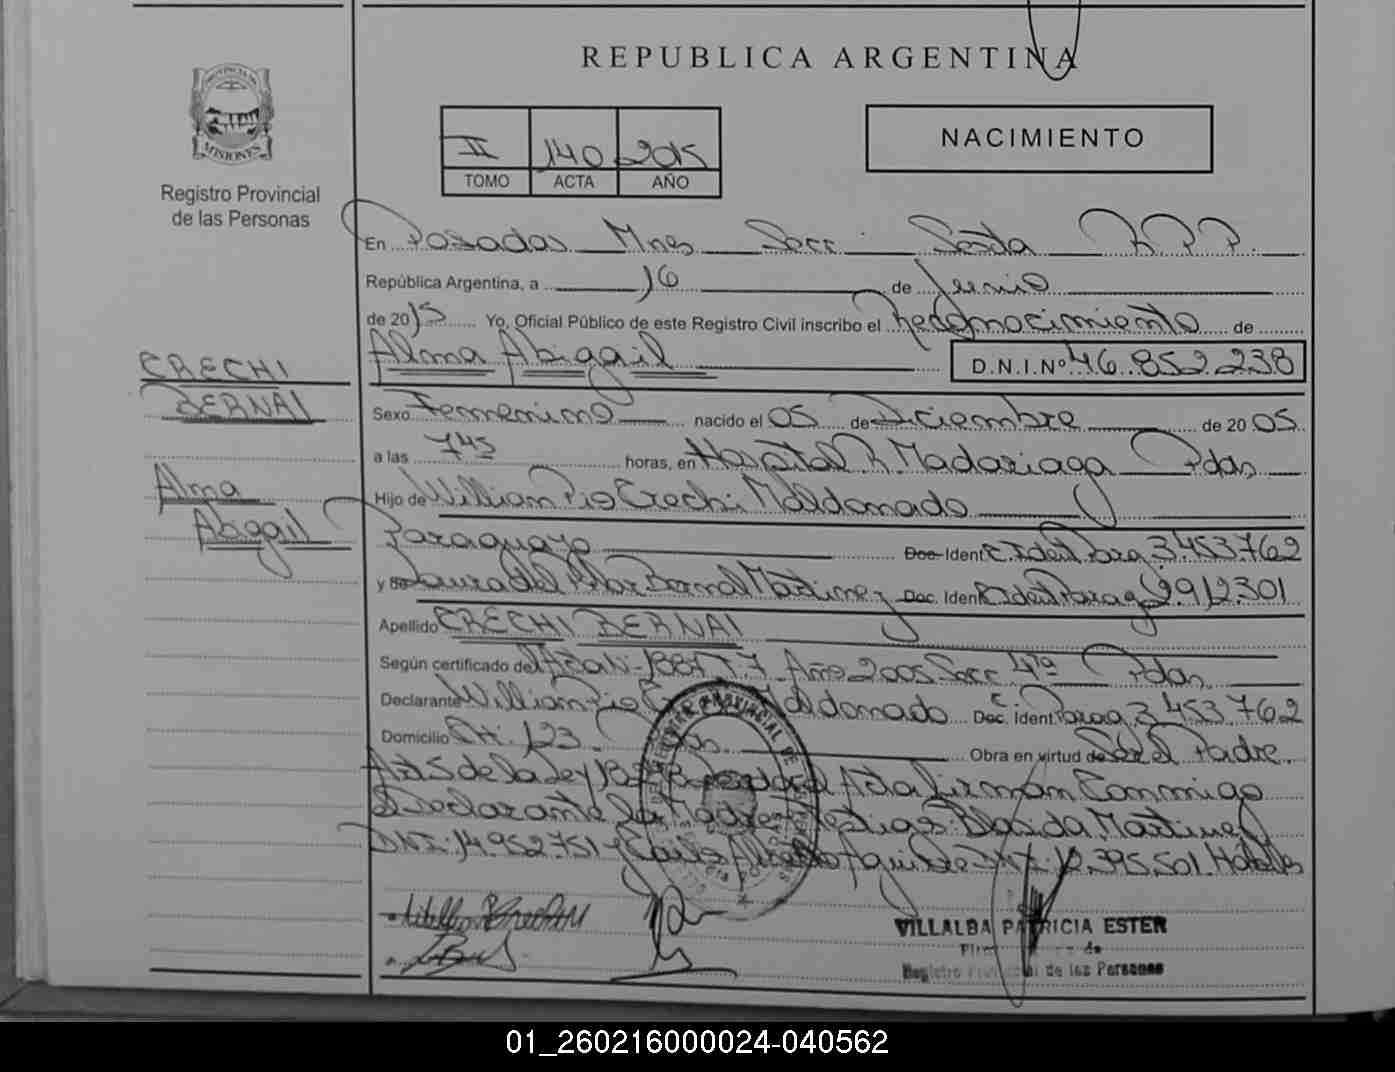 REPUBLICA ARGENTINA
PROVINCIA DE
MISIONES
Registro Provincial
de las Personas
II 140 2015
TOMO ACTA AÑO
NACIMIENTO
En Posadas Mnes Secc Sexta R.P.P.
República Argentina, a 16 de Junio
de 2015 Yo, Oficial Público de este Registro Civil inscribo el Reconocimiento de
Alma Abigail D.N.I.Nº 46.852.238
CRECHI
BERNAL
Alma
Abigail
Sexo Femenino nacido el 05 de Diciembre de 20 05
a las 7 45 horas, en Hospital R. Madariaga Pdas.
Hijo de William Pio Crechi Maldonado
Paraguayo Doc. Ident C. Ident Parag 3.453.762
y de Laura del Mar Bernal Martinez Doc. Ident C. Ident Parag
Apellido CRECHI BERNAL
Según certificado del Acta N- 1887 T 7 Año 2005 Secc 4ta Pdas.
Declarante William Pio Maldonado Doc. Ident C. Parag 3.453.762
Domicilio CH. 123. Obra en virtud de Ser el Padre.
Art 5 de la Ley Acta firman Conmigo
Declarante la Madre Testigos Blasida Martinez
DNI: 14.952.751 y Carlos Alberto DNI: 12.395.501. Hábiles
VILLALBA PATRICIA ESTER
Registro Provincial de las Personas
01_260216000024-040562